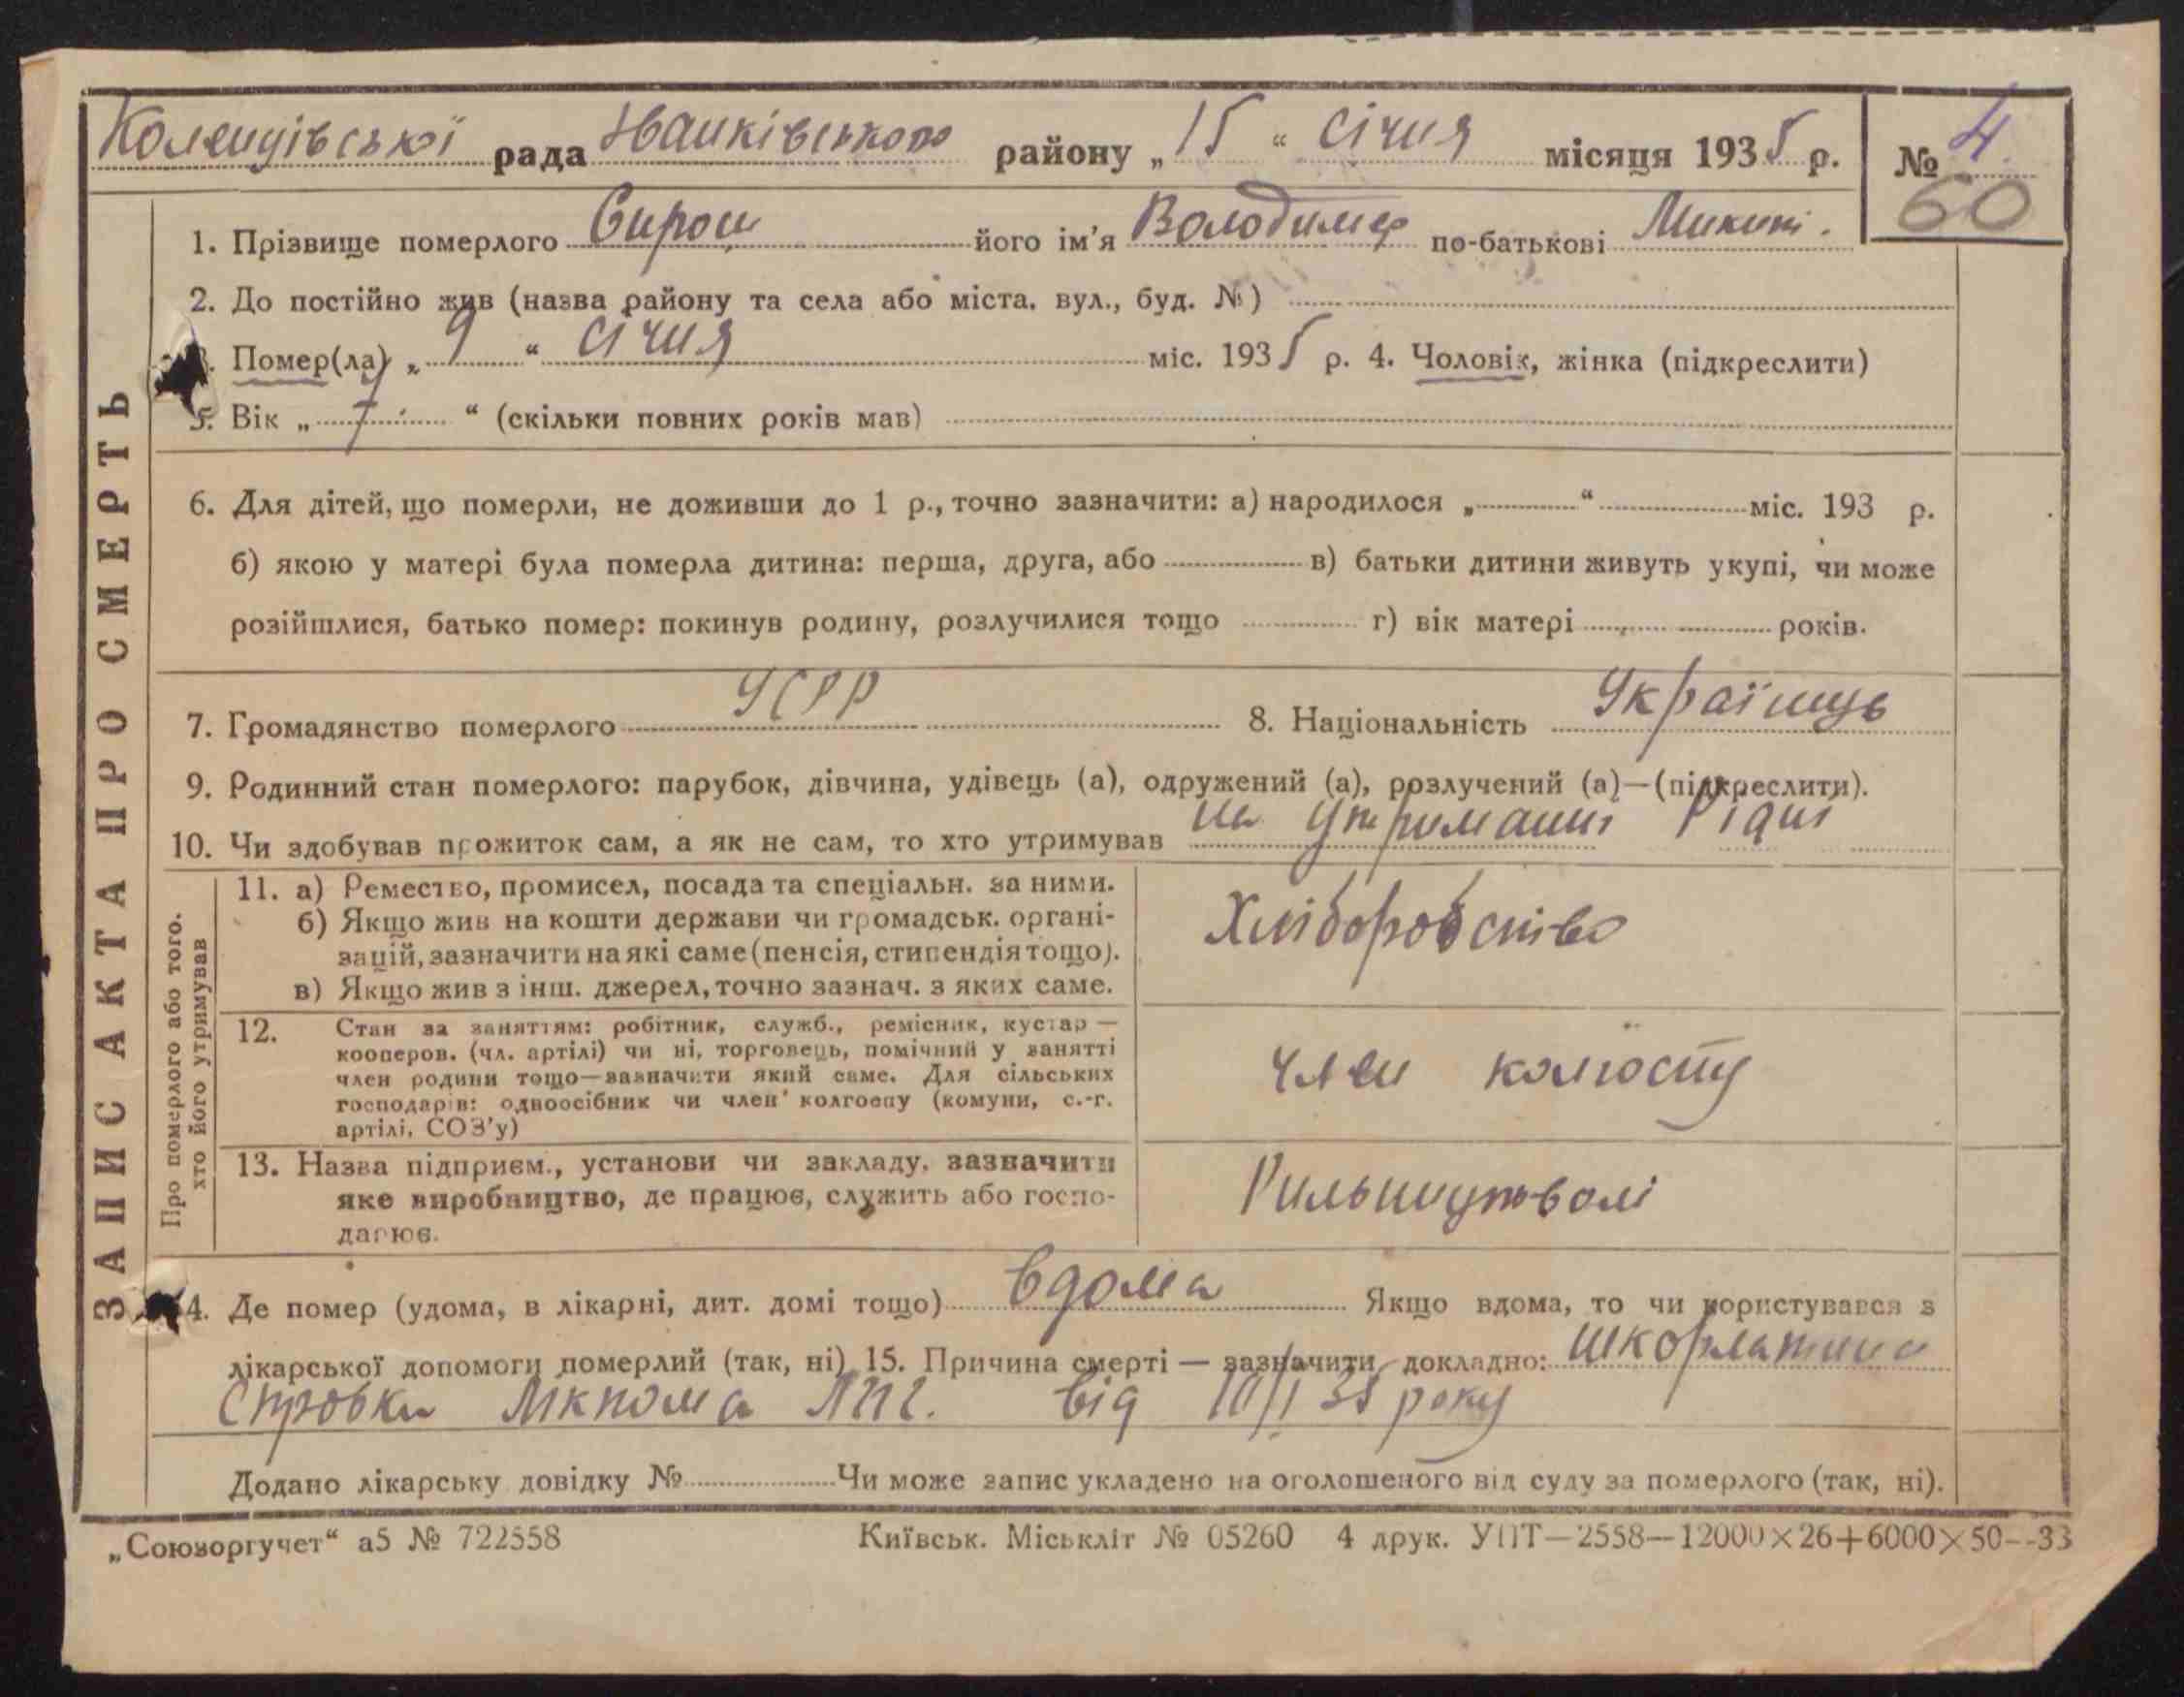 Коленцівської рада Іванківського району „15“ січня місяця 1935 р. № 4
60
1. Прізвище померлого Сирош його ім'я Володимер по-батькові Микит.
2. До постійно жив (назва району та села або міста, вул., буд. №)
3. Помер(ла) „9“ січня міс. 1935 р. 4. Чоловік, жінка (підкреслити)
5. Вік „7“ (скільки повних років мав)
6. Для дітей, що померли, не доживши до 1 р., точно зазначити: а) народилося „ “ міс. 193 р.
б) якою у матері була померла дитина: перша, друга, або в) батьки дитини живуть укупі, чи може
розійшлися, батько помер: покинув родину, розлучилися тощо г) вік матері років.
7. Громадянство померлого УСРР 8. Національність Українець
9. Родинний стан померлого: парубок, дівчина, удівець (а), одружений (а), розлучений (а)—(підкреслити).
10. Чи здобував прожиток сам, а як не сам, то хто утримував на утриманні рідні
ЗАПИС АКТА ПРО СМЕРТЬ
Про померлого або того.
хто його утримував
11. а) Ремество, промисел, посада та спеціальн. за ними.
б) Якщо жив на кошти держави чи громадськ. органі-
зацій, зазначити на які саме (пенсія, стипендія тощо).
в) Якщо жив з інш. джерел, точно зазнач. з яких саме.
Хліборобство
12. Стан за заняттям: робітник, служб., ремісник, кустар —
кооперов. (чл. артілі) чи ні, торговець, помічний у занятті
член родини тощо—зазначити який саме. Для сільських
господарів: одноосібник чи член колгоспу (комуни, с.-г.
артілі, СОЗ'у)
член колгоспу
13. Назва підприєм., установи чи закладу, зазначити
яке виробництво, де працює, служить або госпо-
дарює.
Рильництволі
14. Де помер (удома, в лікарні, дит. домі тощо) вдома Якщо вдома, то чи користувався з
лікарської допомоги померлий (так, ні) 15. Причина смерті — зазначити докладно: шкорлатина
від 10/I 35 року
Додано лікарську довідку № Чи може запис укладено на оголошеного від суду за померлого (так, ні).
„Союзоргучет“ а5 № 722558 Київськ. Міськліт № 05260 4 друк. УПТ—2558—12000×26+6000×50--33